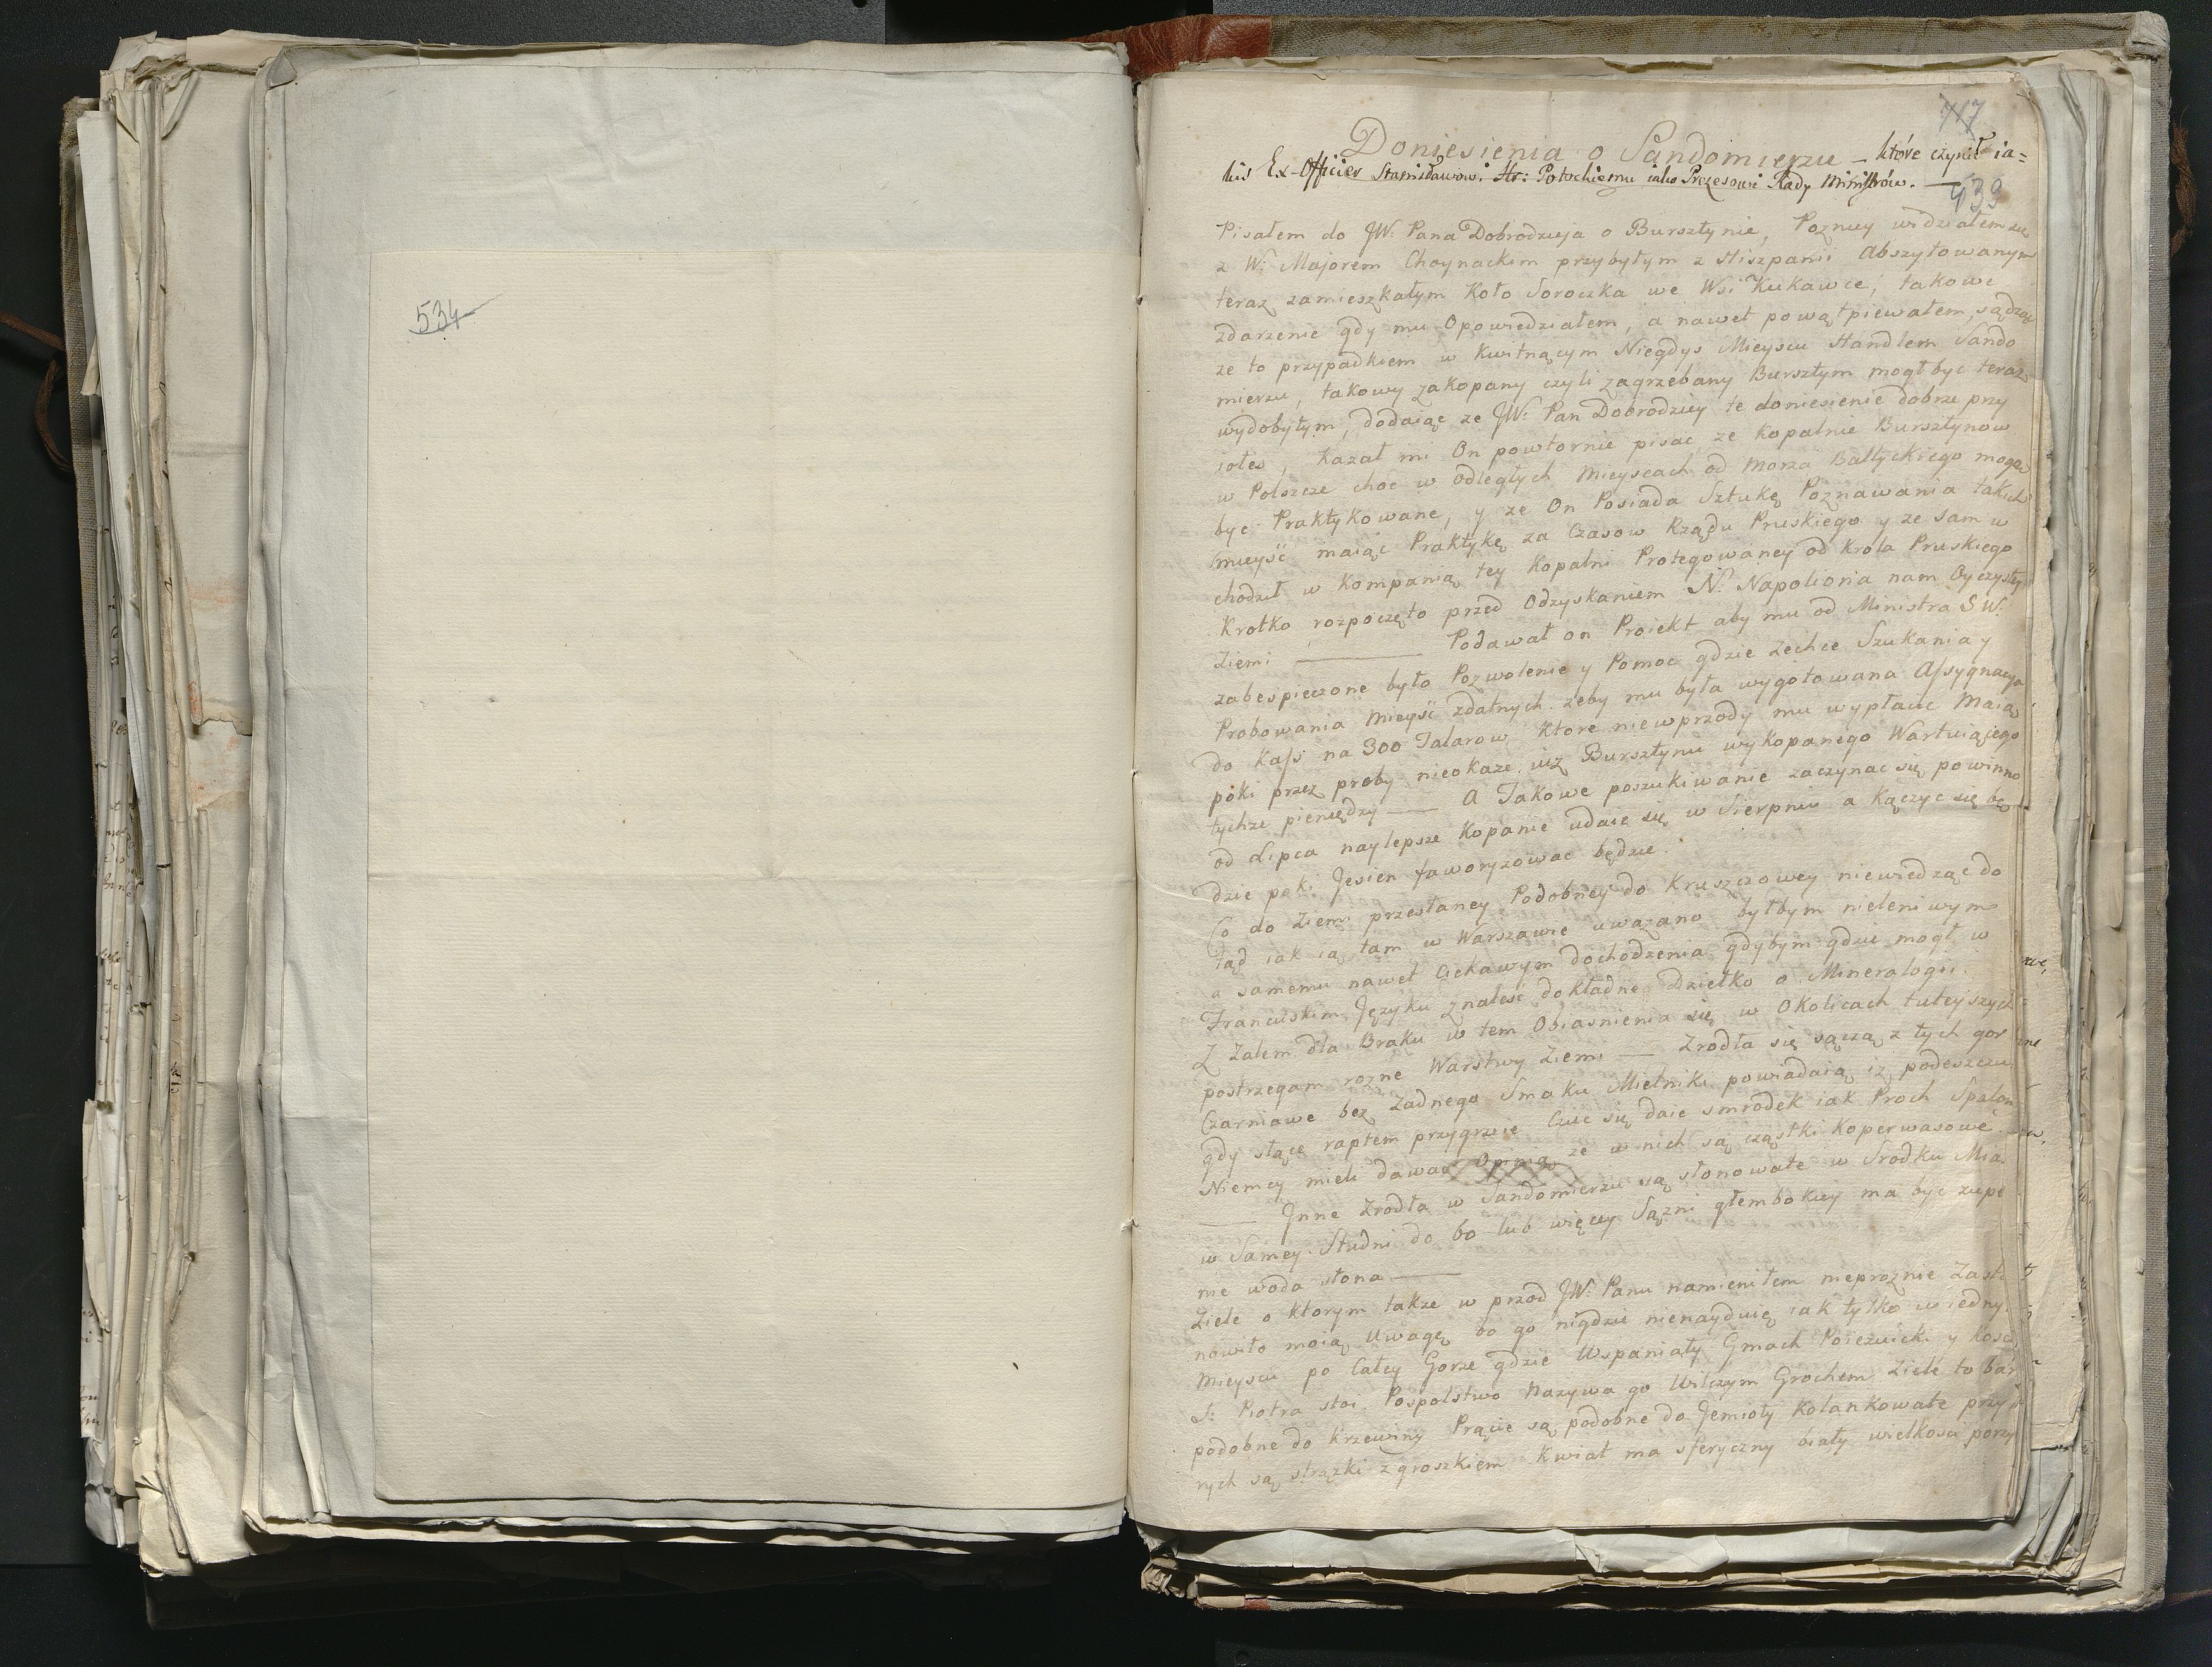 534
717
Doniesienia o Sandomierzu – które czynił ia=
kis Ex-Officier Stanisławowi Hr: Potockiemu iako Prezesowi Rady Ministrów. —
439
Pisałem do JW: Pana Dobrodzieja o Bursztynie, Pozniey widziałem się
z W: Majorem Choynackim przybyłym z Hiszpanii Abszytowanym
teraz zamieszkałym koło Soroczka we Wsi Kukawce, takowe
zdarzenie gdy mu Opowiedziałem, a nawet powątpiewałem, sądząc
ze to przypadkiem w kwitnącym Niegdys Mieyscu Handlem Sando
mierzu, takowy zakopany czyli zagrzebany Bursztym mogł byc teraz
wydobytym, dodaiąc ze JW: Pan Dobrodziey te doniesienie dobrze przy
iołes, Kazał mi On powtornie pisac, ze Kopalnie Bursztynow
w Polszcze choc w odległych Mieyscach od Morza Baltyckiego mogą
byc Praktykowane, y ze On Posiada Sztukę Poznawania takich
mieyść maiąc Praktykę za Czasow Rządu Pruskiego y ze sam w
chodził w Kompanią tey Kopalni Protegowaney od Krola Pruskiego
Krotko rozpoczęto przed Odzyskaniem N: Napoliona nam Oyczysty
Ziemi ——— Podawał on Proiekt aby mu od Ministra S W:
zabespieczone było Pozwolenie y Pomoc gdzie Zechce Szukania y
Probowania Mieyść zdatnych. zeby mu była wygotowana Assygnacya
do Kass na 300 Talarow Ktore niewprzody mu wypłacic Maią
póki przez proby nieokaze iuz Bursztynu wykopanego Wartuiącego
tychze pieniędzy —— A Takowe poszukiwanie zaczynac się powinno
od Lipca naylepsze Kopanie udaie się w Sierpniu a Kączyc się bę
dzie poki Jesien faworyzowac będzie.
Co do Ziemi przesłaney Podobney do Kruszczowey niewiedząc do
tąd iak ią tam w Warszawie uwazano byłbym nieleniwym
a samemu nawet Ciekawym dochodzenia gdybym gdzie mogł w
Francuskim Języku znaleść dokładne Dziełko o Mineralogii.
Z Zalem dla Braku w tem Obiasnienia się w Okolicach tuteyszych
postrzegam rozne Warstwy Ziemi —— Zrodła się sączą z tych gor
Czarniawe bez Zadnego Smaku Mielniki powiadaią iz podeszczu
gdy słące raptem przygrzeie Czuc się daie smrodek iak Proch Spalon
Niemcy mieli dawac Opinią ze w nich są cząstki Koperwasowe.
—— Jnne Zrodła w Sandomierzu są słonowate w Srodku Mia
w Samey Studni do 60 lub więcey Sązni głembokiey ma byc zupe
nie woda słona ——
Ziele o ktorym takze w przod JW: Panu namieniłem nieproznie Zasta
nowiło moią Uwagę bo go nigdzie nienayduię iak tylko w iedny
Mieyscu po Całey Gorze gdzie Wspaniały Gmach Poiezuicki y Kosc
S: Piotra stoi Pospolstwo Nazywa go Wilczym Grochem Ziele to bar
podobne do Krzewiny Prącie są podobne do Jemioły Kolankowate przy
rych są strązki z groszkiem Kwiat ma sferyczny biały wielkosci porzy